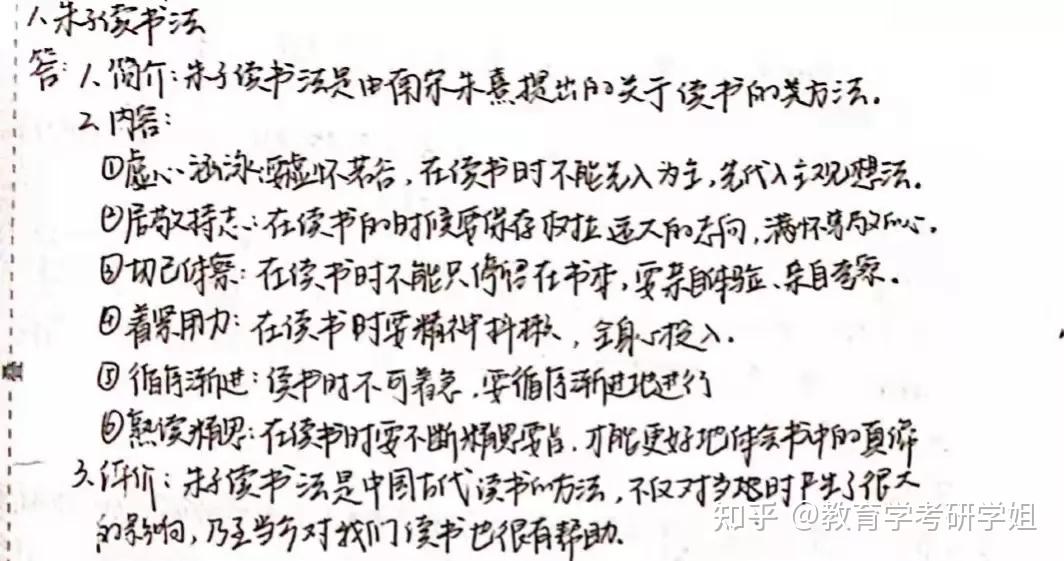 1.朱子读书法
答:1.简介:朱子读书法是由南宋朱熹提出的关于读书的类方法。
2.内容:
①虚心涵泳:要虚怀若谷,在读书时不能先入为主,先代入主观想法。
②居敬持志:在读书的时候要保存 远大的志向,满怀 心。
③切己体察:在读书时不能只停留在书本,要亲自体验、亲自考察。
④着紧用力:在读书时要精神抖擞,全身心投入.
⑤循序渐进:读书时不可着急,要循序渐进地进行
⑥熟读精思:在读书时要不断精思 ,才能更好地体会书中的真谛
3.评价:朱子读书法是中国古代读书的方法,不仅对当 时产生了很大
的影响,乃至当今对我们读书也很有帮助.
知乎 @教育学考研学姐